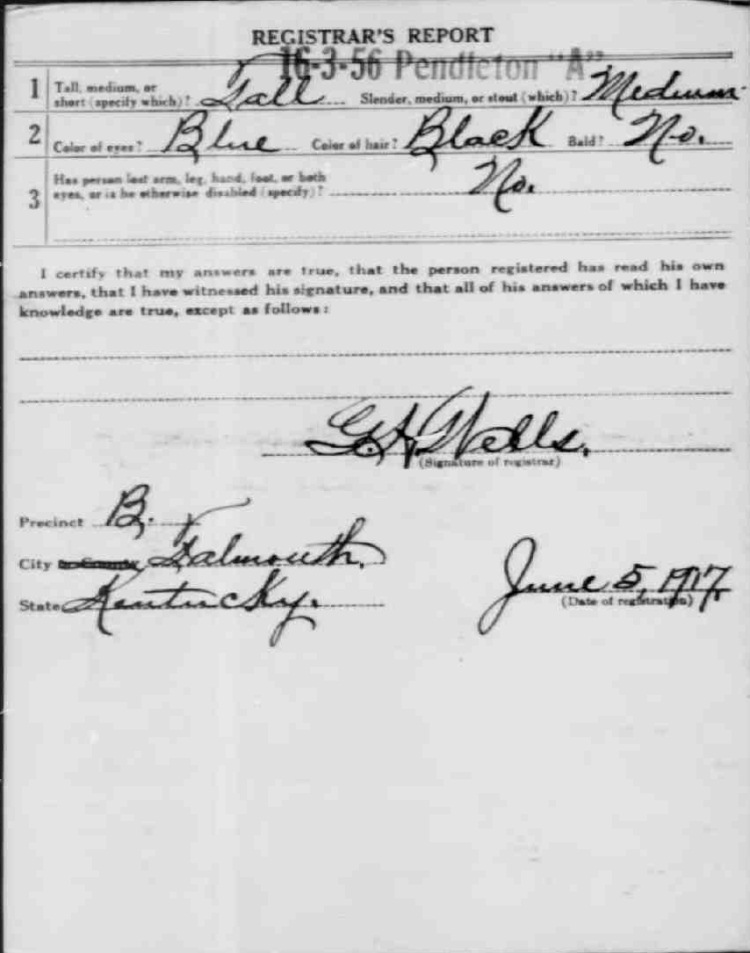 REGISTRAR'S REPORT
16-3-56 Pendleton "A"
1 Tall, medium, or short (specify which)? Tall Slender, medium, or stout (which)? Medium
2 Color of eyes? Blue Color of hair? Black Bald? No.
3 Has person lost arm, leg, hand, foot, or both
eyes, or is he otherwise disabled (specify)? No.
I certify that my answers are true, that the person registered has read his own
answers, that I have witnessed his signature, and that all of his answers of which I have
knowledge are true, except as follows:
G. A. Wells.
(Signature of registrar)
Precinct B.
City or County Falmouth.
State Kentucky.
June 5, 1917.
(Date of registration)